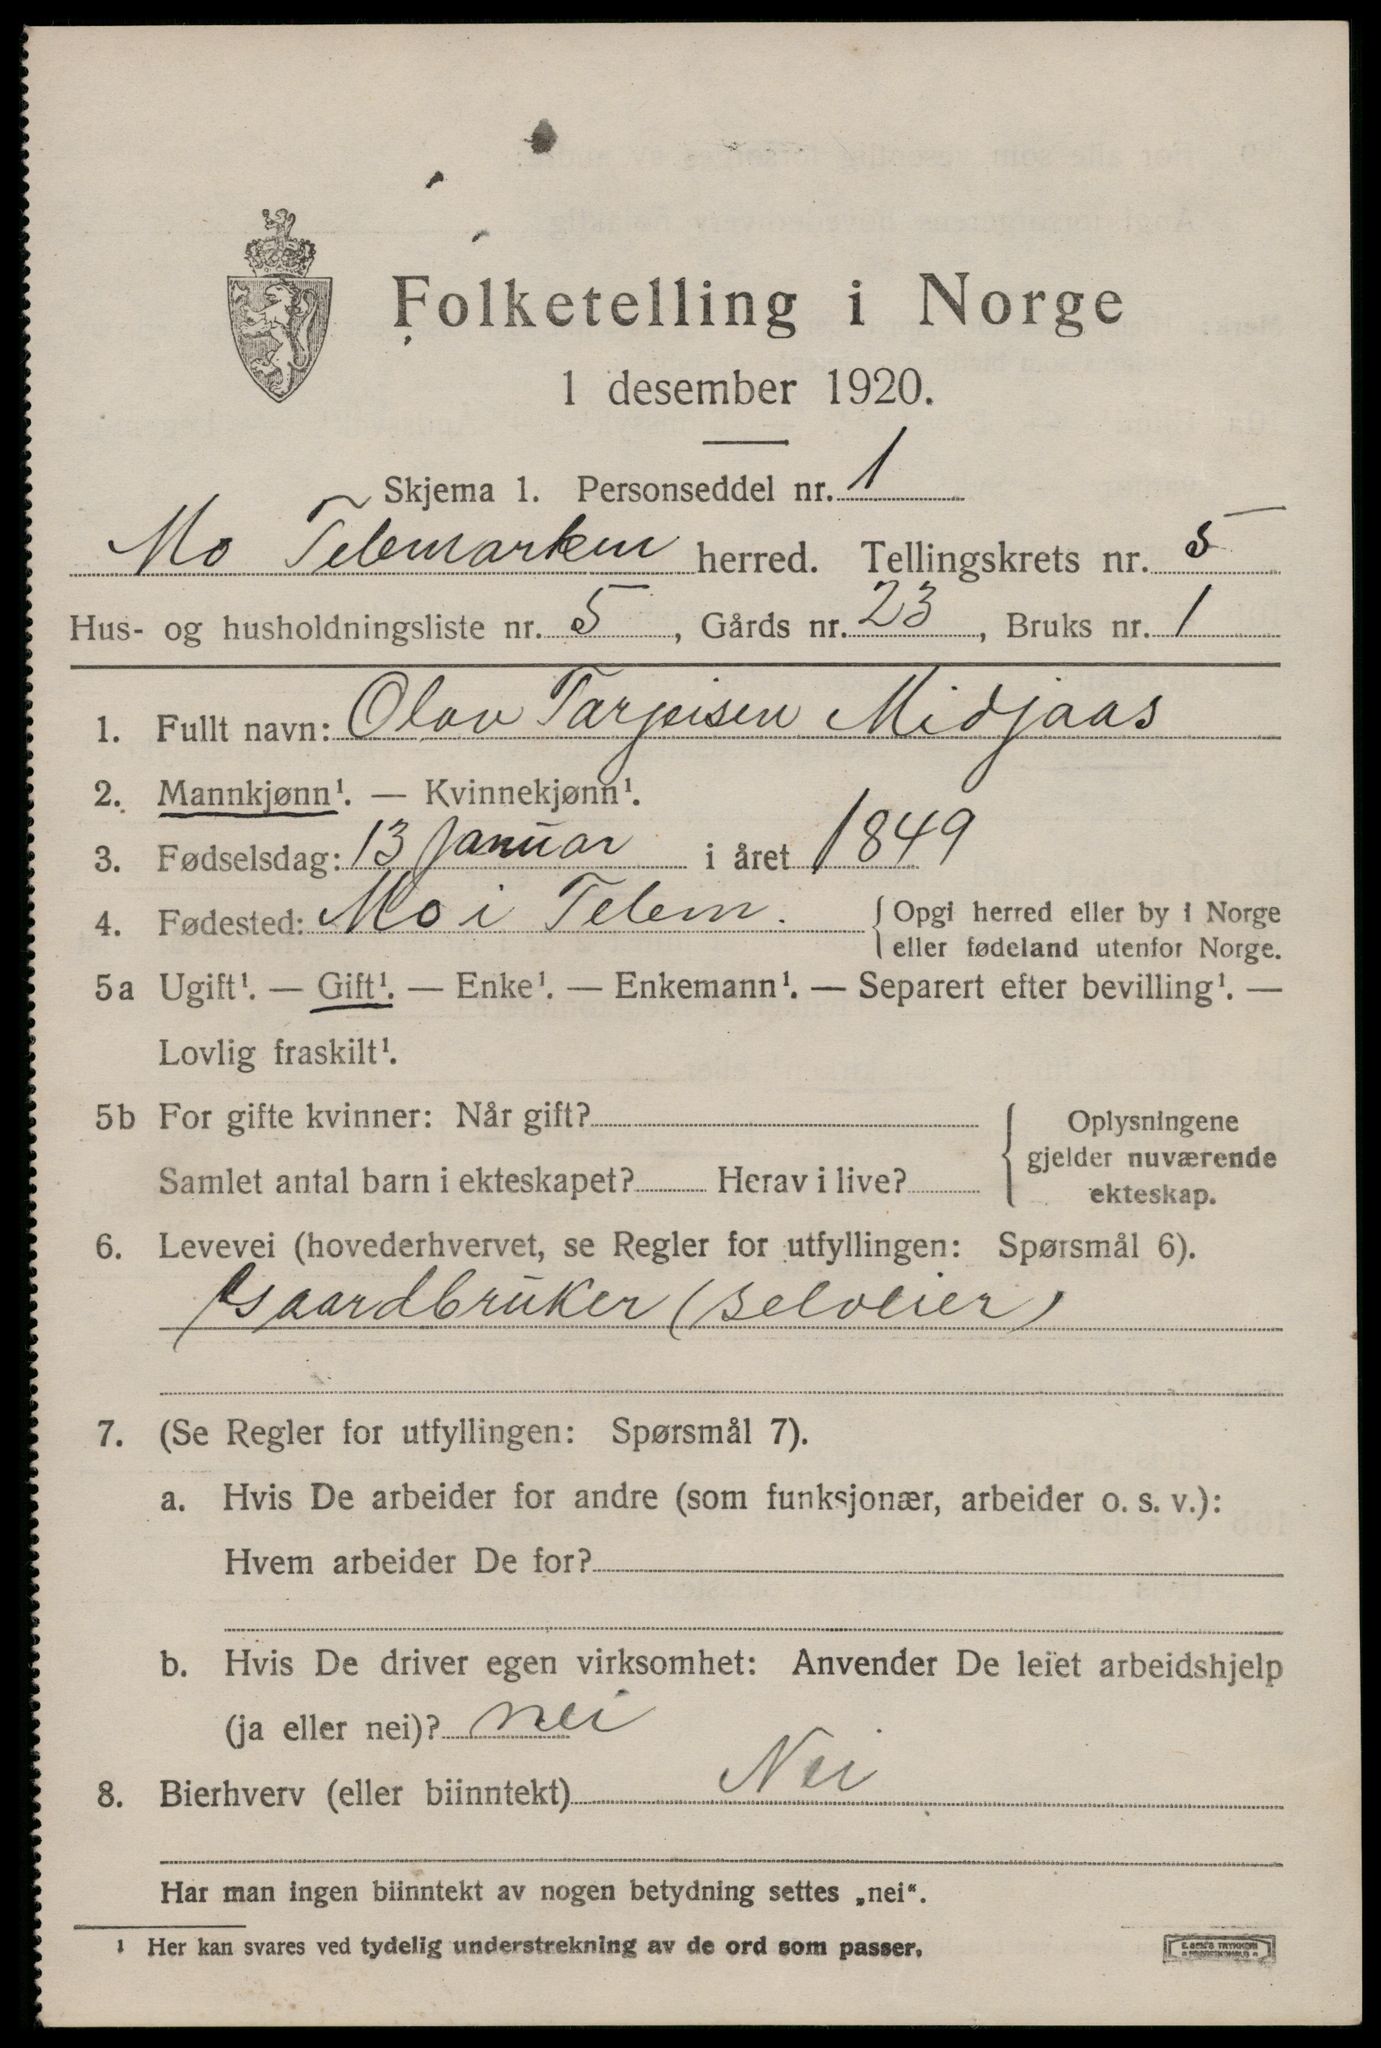 Folketelling i Norge
1 desember 1920.
Skjema 1. Personseddel nr. 1
Mo Telemarken herred. Tellingskrets nr. 5
Hus- og husholdningsliste nr. 5, Gårds nr. 23, Bruks nr. 1
1. Fullt navn: Olav Tarjeisen Midjaas
2. Mannkjønn¹. — Kvinnekjønn¹.
3. Fødselsdag: 13 januar i året 1849
4. Fødested: Mo i Telem. { Opgi herred eller by i Norge
eller fødeland utenfor Norge.
5a Ugift¹. — Gift¹. — Enke¹. — Enkemann¹. — Separert efter bevilling¹. —
Lovlig fraskilt¹.
5b For gifte kvinner: Når gift?
Samlet antal barn i ekteskapet? Herav i live?
{ Oplysningene
gjelder nuværende
ekteskap.
6. Levevei (hovederhvervet, se Regler for utfyllingen: Spørsmål 6).
Gaardbruker (selveier)
7. (Se Regler for utfyllingen: Spørsmål 7).
a. Hvis De arbeider for andre (som funksjonær, arbeider o. s. v.):
Hvem arbeider De for?
b. Hvis De driver egen virksomhet: Anvender De leiet arbeidshjelp
(ja eller nei)? nei
8. Bierhverv (eller biinntekt) Nei
Har man ingen biinntekt av nogen betydning settes „nei“.
¹ Her kan svares ved tydelig understrekning av de ord som passer.